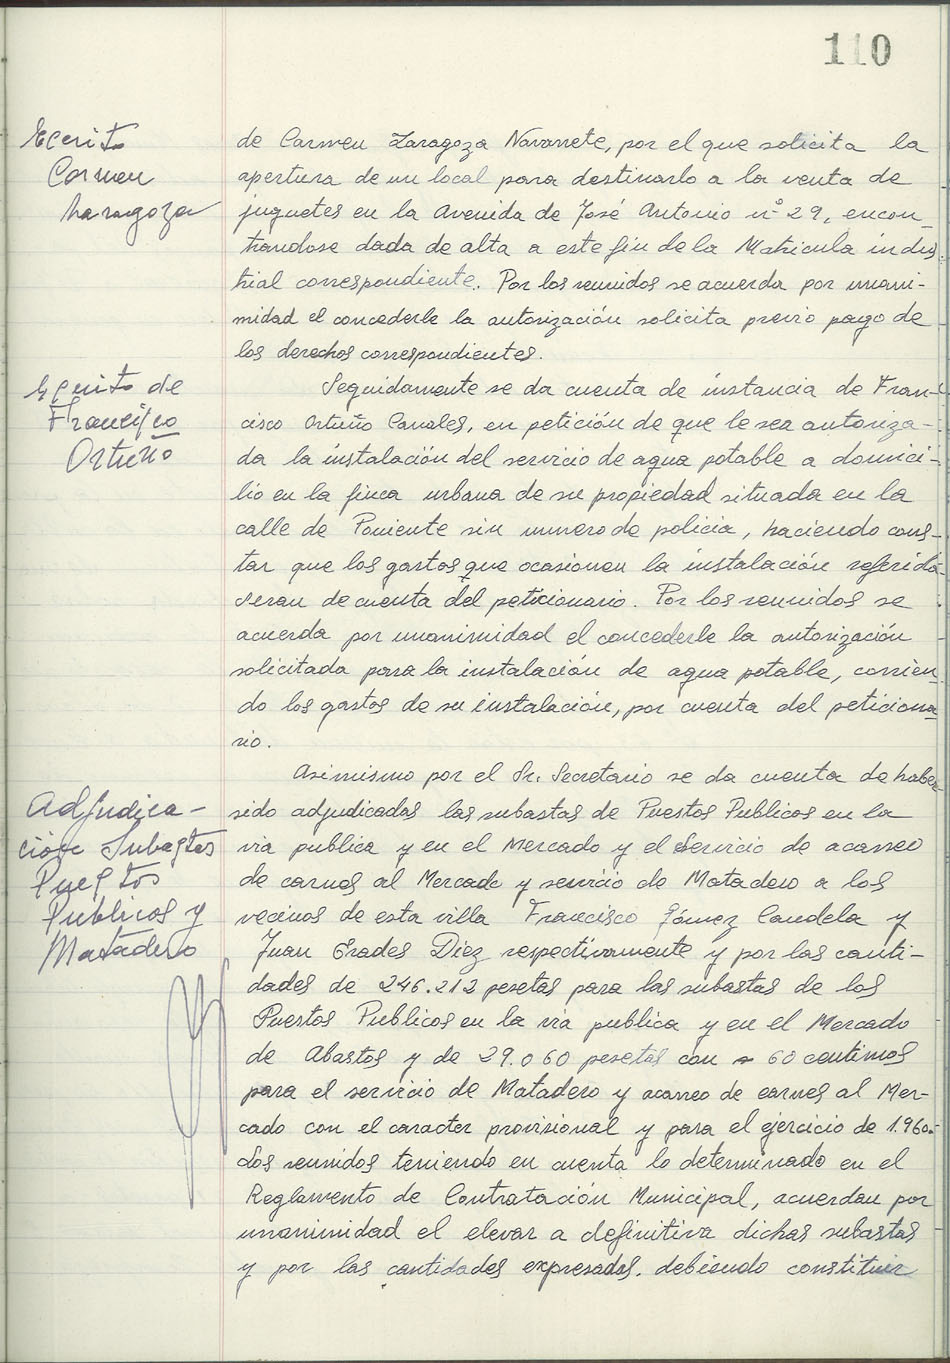 110
Escrito
Carmen
Zaragoza
de Carmen Zaragoza Navarrete, por el que solicita la
apertura de un local para destinarlo a la venta de
juguetes en la Avenida de José Antonio nº 29, encon
trandose dada de alta a este fin de la Matricula indus
trial correspondiente. Por los reunidos se acuerda por unani-
midad el concederle la autorización solicita previo pago de
los derechos correspondientes.
Escrito de
Francisco
Ortuño
Seguidamente se da cuenta de instancia de Fran-
cisco Ortuño Canales, en petición de que le sea autoriza-
da la instalación del servicio de agua potable a domici-
lio en la finca urbana de su propiedad situada en la
calle de Poniente sin numero de policia, haciendo cons-
tar que los gastos que ocasionen la instalación referida
seran de cuenta del peticionario. Por los reunidos se
acuerda por unanimidad el concederle la autorización
solicitada para la instalación de agua potable, corrien
do los gastos de su instalación, por cuenta del peticiona
rio.
Adjudica-
ción Subastas
Puestos
Publicos y
Matadero
Asimismo por el Sr. Secretario se da cuenta de haber
sido adjudicadas las subastas de Puestos Publicos en la
via publica y en el Mercado y el Servicio de acarreo
de carnes al Mercado y servicio de Matadero a los
vecinos de esta villa Francisco Gómez Candela y
Juan Grades Diez respectivamente y por las canti-
dades de 246.212 pesetas para las subastas de los
Puestos Publicos en la via publica y en el Mercado
de Abastos y de 29.060 pesetas con 60 centimos
para el servicio de Matadero y acarreo de carnes al Mer-
cado con el caracter provisional y para el ejercicio de 1.960.-
Los reunidos teniendo en cuenta lo determinado en el
Reglamento de Contratación Municipal, acuerdan por
unanimidad el elevar a definitiva dichas subastas
y por las cantidades expresadas, debiendo constituir